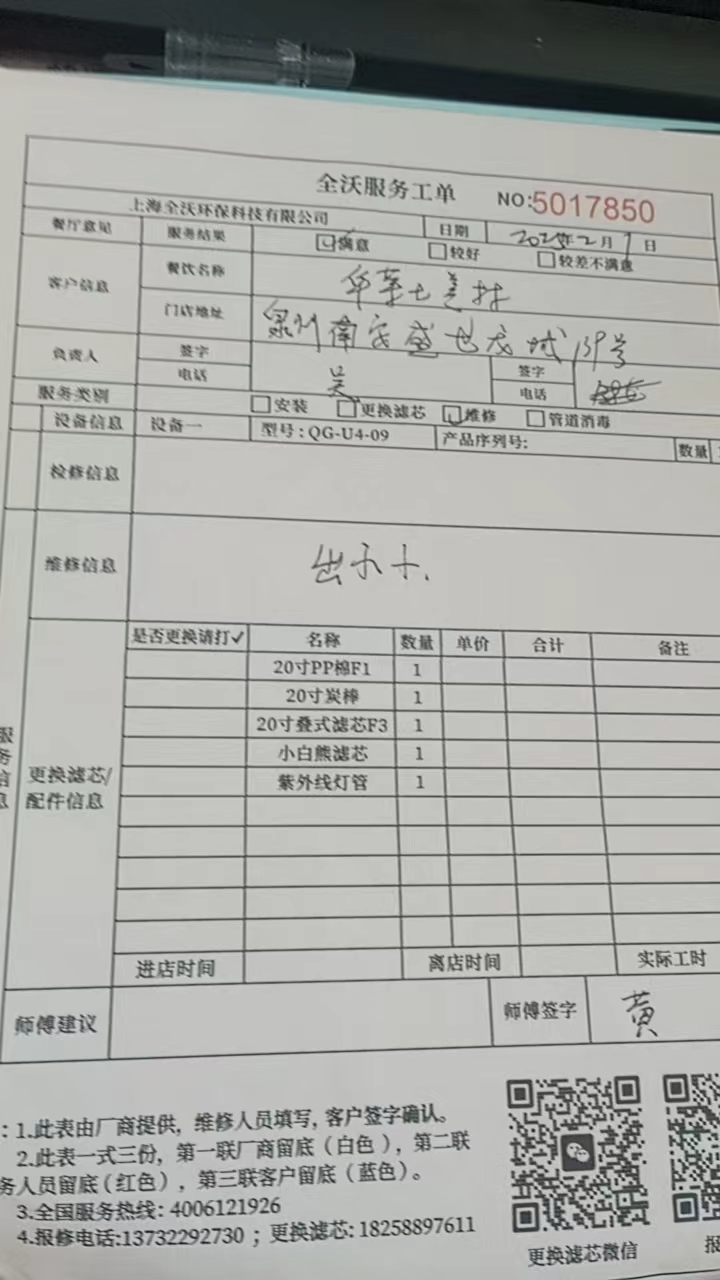 全沃服务工单 NO:5017850
上海全沃环保科技有限公司 日期 2025年2月7日
餐厅意见 服务结果 满意 较好 较差不满意
客户信息 餐饮名称 华莱士美林
门店地址 泉州南安盛世龙城139号
负责人 签字 吴 签字
电话 电话
服务类别 安装 更换滤芯 维修 管道消毒
设备信息 设备一 型号:QG-U4-09 产品序列号: 数量
检修信息
维修信息 出水小.
是否更换请打✓ 名称 数量 单价 合计 备注
20寸PP棉F1 1
20寸炭棒 1
20寸叠式滤芯F3 1
小白熊滤芯 1
紫外线灯管 1
更换滤芯/
配件信息
进店时间 离店时间 实际工时
师傅建议 师傅签字 黄
:1.此表由厂商提供,维修人员填写,客户签字确认。
2.此表一式三份,第一联厂商留底(白色),第二联
务人员留底(红色),第三联客户留底(蓝色)。
3.全国服务热线:4006121926
4.报修电话:13732292730;更换滤芯:18258897611
更换滤芯微信 报